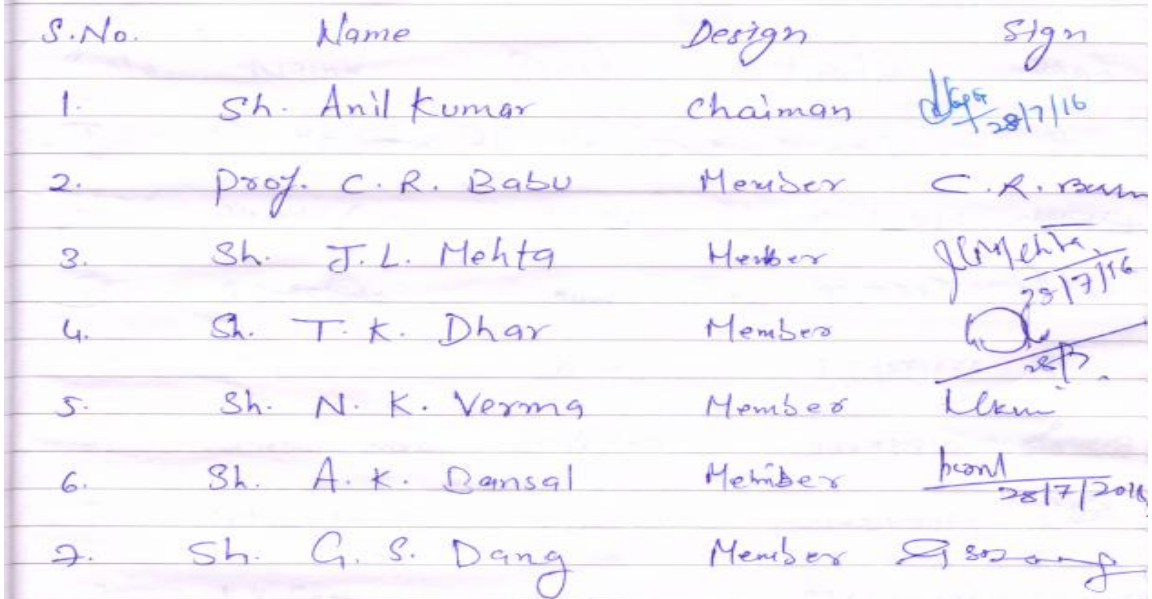 S.No. Name Design Sign
1. Sh. Anil Kumar Chaiman 28/7/16
2. Prof. C. R. Babu Member C. R. Babu
3. Sh. J. L. Mehta Member JLMehta 28/7/16
4. Sh. T. K. Dhar Member 28/7
5. Sh. N. K. Verma Member
6. Sh. A. K. Bansal Member 28/7/2016
7. Sh. G. S. Dang Member GSDang